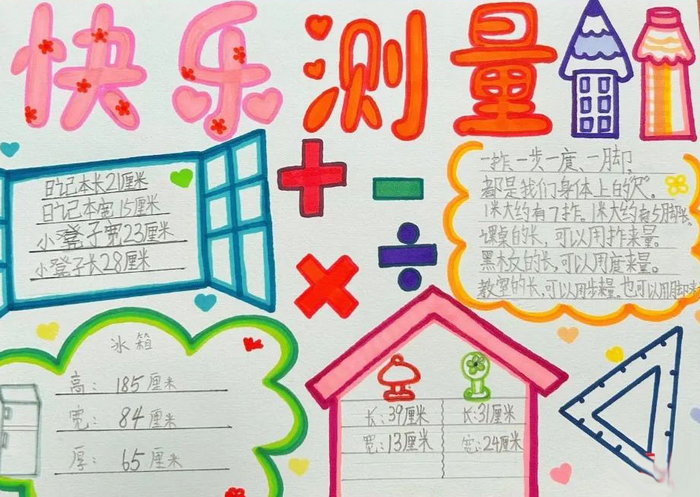 快乐测量
日记本长21厘米
日记本宽15厘米
小凳子宽23厘米
小凳子长28厘米
一拃、一步一度、一脚,
都是我们身体上的尺。
1米大约有7拃。1米大约有5月脚长。
课桌的长,可以用拃来量。
黑板的长,可以用度来量。
教室的长,可以用步来量,也可以用脚来
冰箱
高:185厘米
宽:84厘米
厚:65厘米
长:39厘米
宽:13厘米
长:31厘米
宽:24厘米